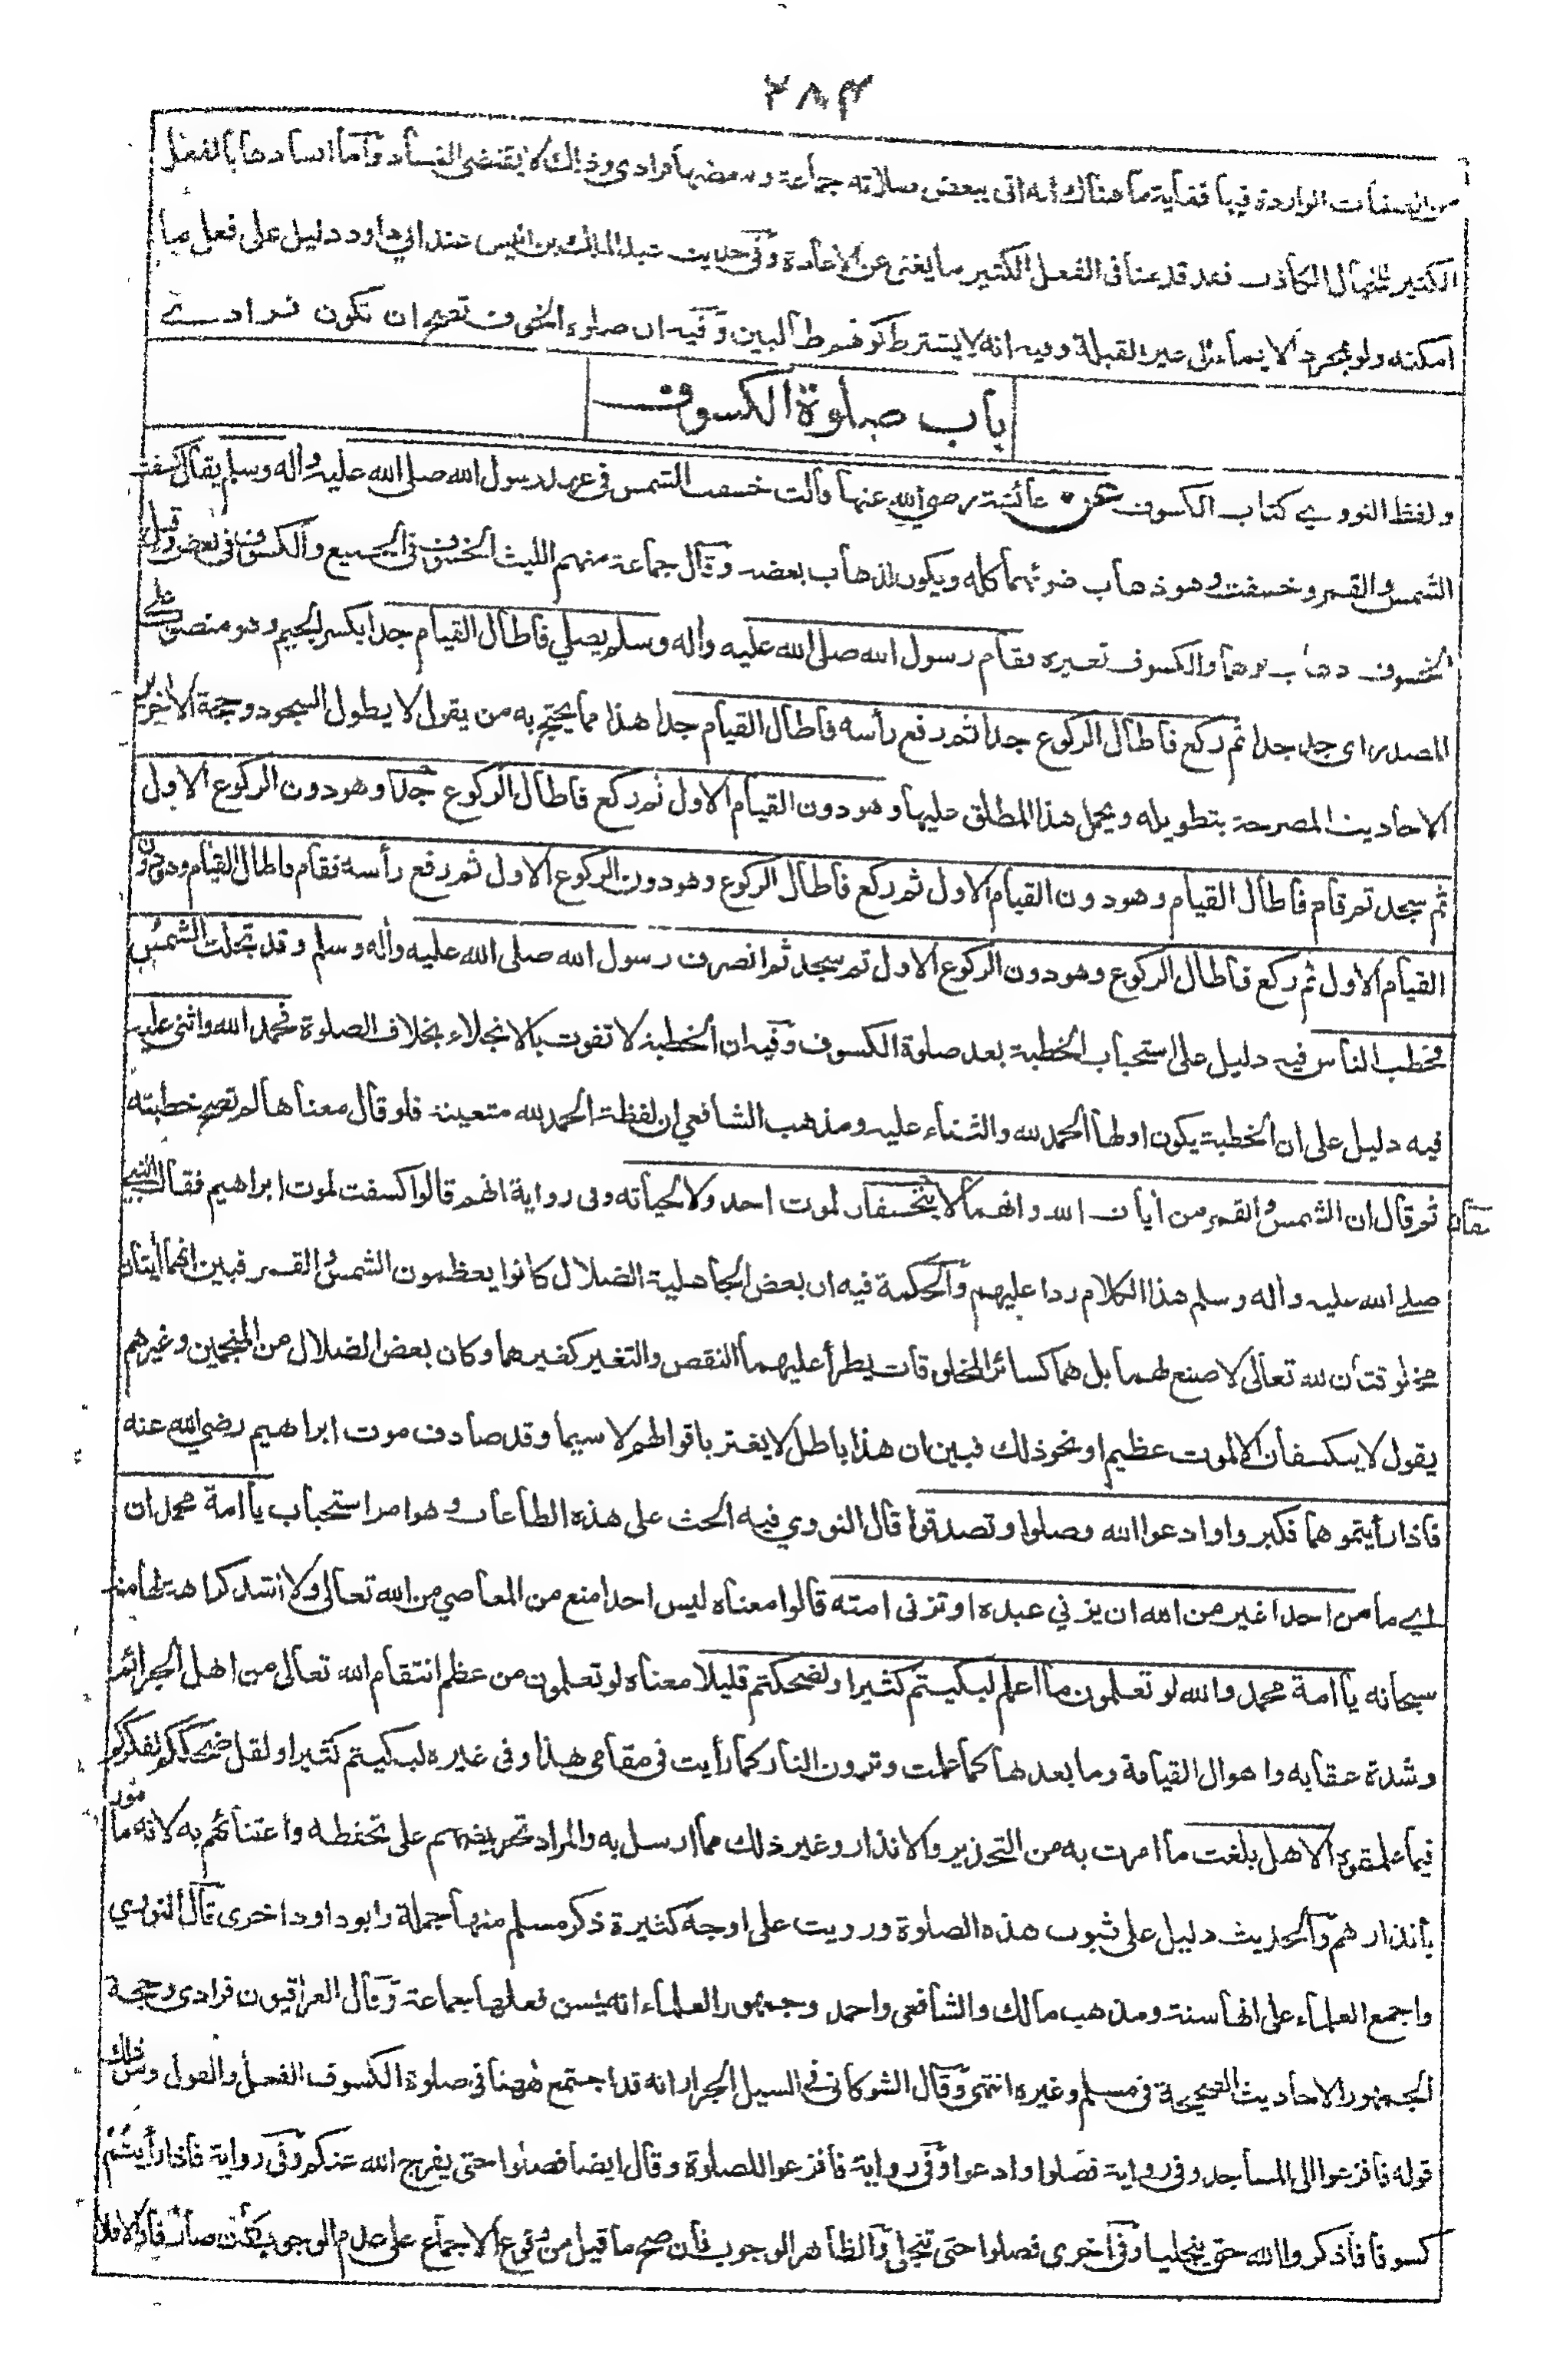 ٢٨٣
من الصفات الواردة فيها فغاية ما هناك انه اتى ببعض صلاته جماعة وبعضها فرادى وذلك لا يقتضي الفساد وأما افسادها بالفعل
الكثير للخيال الكاذب فقد قدمنا في الفعل الكثير ما يغني عن الاعادة وفي حديث عبد الله بن انيس عند ابي داود دليل على فعل ما
امكنه ولو بمجرد الايماء الى غير القبلة وفيه انه لا يشترط كونهم طالبين وفيه ان صلوة الخوف تصح ان تكون فرادے
باب صلوة الكسوف
ولفظ النووي كتاب الكسوف عن عائشة رضي الله عنها قالت خسفت الشمس في عهد رسول الله صلى الله عليه واله وسلم يقال كسفت
الشمس والقمر وخسفت وهو ذهاب ضوئهما كله ويكون لذهاب بعضه وقال جماعة منهم الليث الخسوف في الجميع والكسوف في بعض وقيل
الخسوف ذهاب لونهما والكسوف تغيره فقام رسول الله صلى الله عليه واله وسلم يصلي فاطال القيام جدا بكسر الجيم وهو منصوب على
المصدر اي جد جدا ثم ركع فاطال الركوع جدا ثم رفع رأسه فاطال القيام جدا هذا مما يحتج به من يقول لا يطول السجود وحجة الاخرين
الاحاديث المصرحة بتطويله ويحمل هذا المطلق عليها وهو دون القيام الاول ثم ركع فاطال الركوع جدا وهو دون الركوع الاول
ثم سجد ثم قام فاطال القيام وهو دون القيام الاول ثم ركع فاطال الركوع وهو دون الركوع الاول ثم رفع رأسه فقام فاطال القيام وهو دون
القيام الاول ثم ركع فاطال الركوع وهو دون الركوع الاول ثم سجد ثم انصرف رسول الله صلى الله عليه واله وسلم وقد تجلت الشمس
فخطب الناس فيه دليل على استحباب الخطبة بعد صلوة الكسوف وفيه ان الخطبة لا تفوت بالانجلاء بخلاف الصلوة فحمد الله واثنى عليه
فيه دليل على ان الخطبة يكون اولها الحمد لله والثناء عليه ومذهب الشافعي ان لفظة الحمد لله متعينة فلو قال معناها لم تصح خطبته
ثم قال ان الشمس والقمر من أيات الله وانهما لا ينخسفان لموت احد ولا لحياته وفى رواية انهم قالوا كسفت لموت ابراهيم فقال النبي
صلے الله عليه واله وسلم هذا الكلام ردا عليهم والحكمة فيه ان بعض الجاهلية الضلال كانوا يعظمون الشمس والقمر فبين انهما أيتان
مخلوقتان لله تعالى لا صنع لهما بل هما كسائر المخلوقات يطرأ عليهما النقص والتغير كغيرهما وكان بعض الضلال من المنجمين وغيرهم
يقول لا ينكسفان الا لموت عظيم او نحو ذلك فبين ان هذا باطل لا يغتر باقوالهم لا سيما وقد صادف موت ابراهيم رضي الله عنه
فاذا رأيتموهما فكبروا وادعوا الله وصلوا وتصدقوا قال النووي فيه الحث على هذه الطاعات وهو امر استحباب يا امة محمد ان
اے ما من احد اغير من الله ان يزني عبده او تزنى امته قالوا معناه ليس احد امنع من المعاصي من الله تعالى ولا اشد كراهة لها منه
سبحانه يا امة محمد والله لو تعلمون ما اعلم لبكيتم كثيرا ولضحكتم قليلا معناه لو تعلمون من عظم انتقام الله تعالى من اهل الجرائم
وشدة عقابه واهوال القيامة وما بعدها كما علمت وترون النار كما رأيت في مقامي هذا وفي غيره لبكيتم كثيرا ولقل ضحككم لفكركم
فيما علمتموه الا هل بلغت ما امرت به من التحذير والانذار وغير ذلك مما ارسل به والمراد تحريضهم على تحفظه واعتنائهم به لانه مأمور
بأنذارهم والحديث دليل على ثبوت هذه الصلوة ورويت على اوجه كثيرة ذكر مسلم منها جملة وابو داود اخرى قال النووي
واجمع العلماء على انها سنة ومذهب مالك والشافعي واحمد وجمهور العلماء انه يسن فعلها جماعة وقال العراقيون فرادى وحجة
الجمهور الاحاديث الصحيحة في مسلم وغيره انتهى وقال الشوكاني في السيل الجرار انه قد اجتمع ههنا في صلوة الكسوف الفعل والقول ومن ذلك
قوله فافزعوا الى المساجد وفي رواية فصلوا وادعوا وفي رواية فافزعوا للصلوة وقال ايضا فصلوا حتى يفرج الله عنكم وفي رواية فاذا رأيتم
كسوفا فاذكروا الله حتى ينجليا وفي اخرى فصلوا حتى تنجلي والظاهر الوجوب فان صح ما قيل من وقوع الاجماع على عدم الوجوب كان صارفا والا فلا